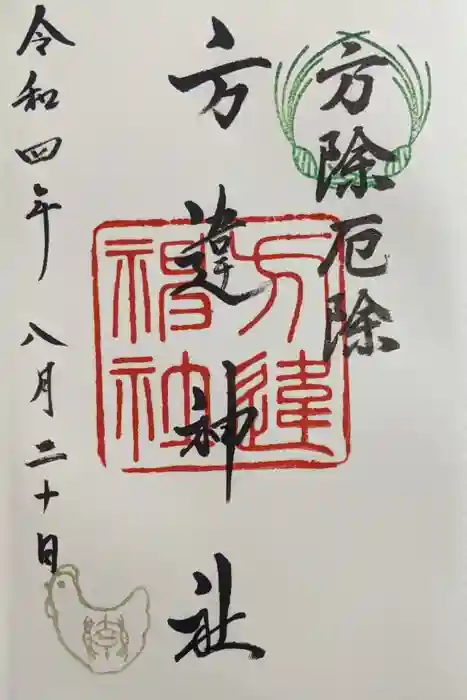 方除厄除
方違神社
方違
神社
令和四年八月二十日